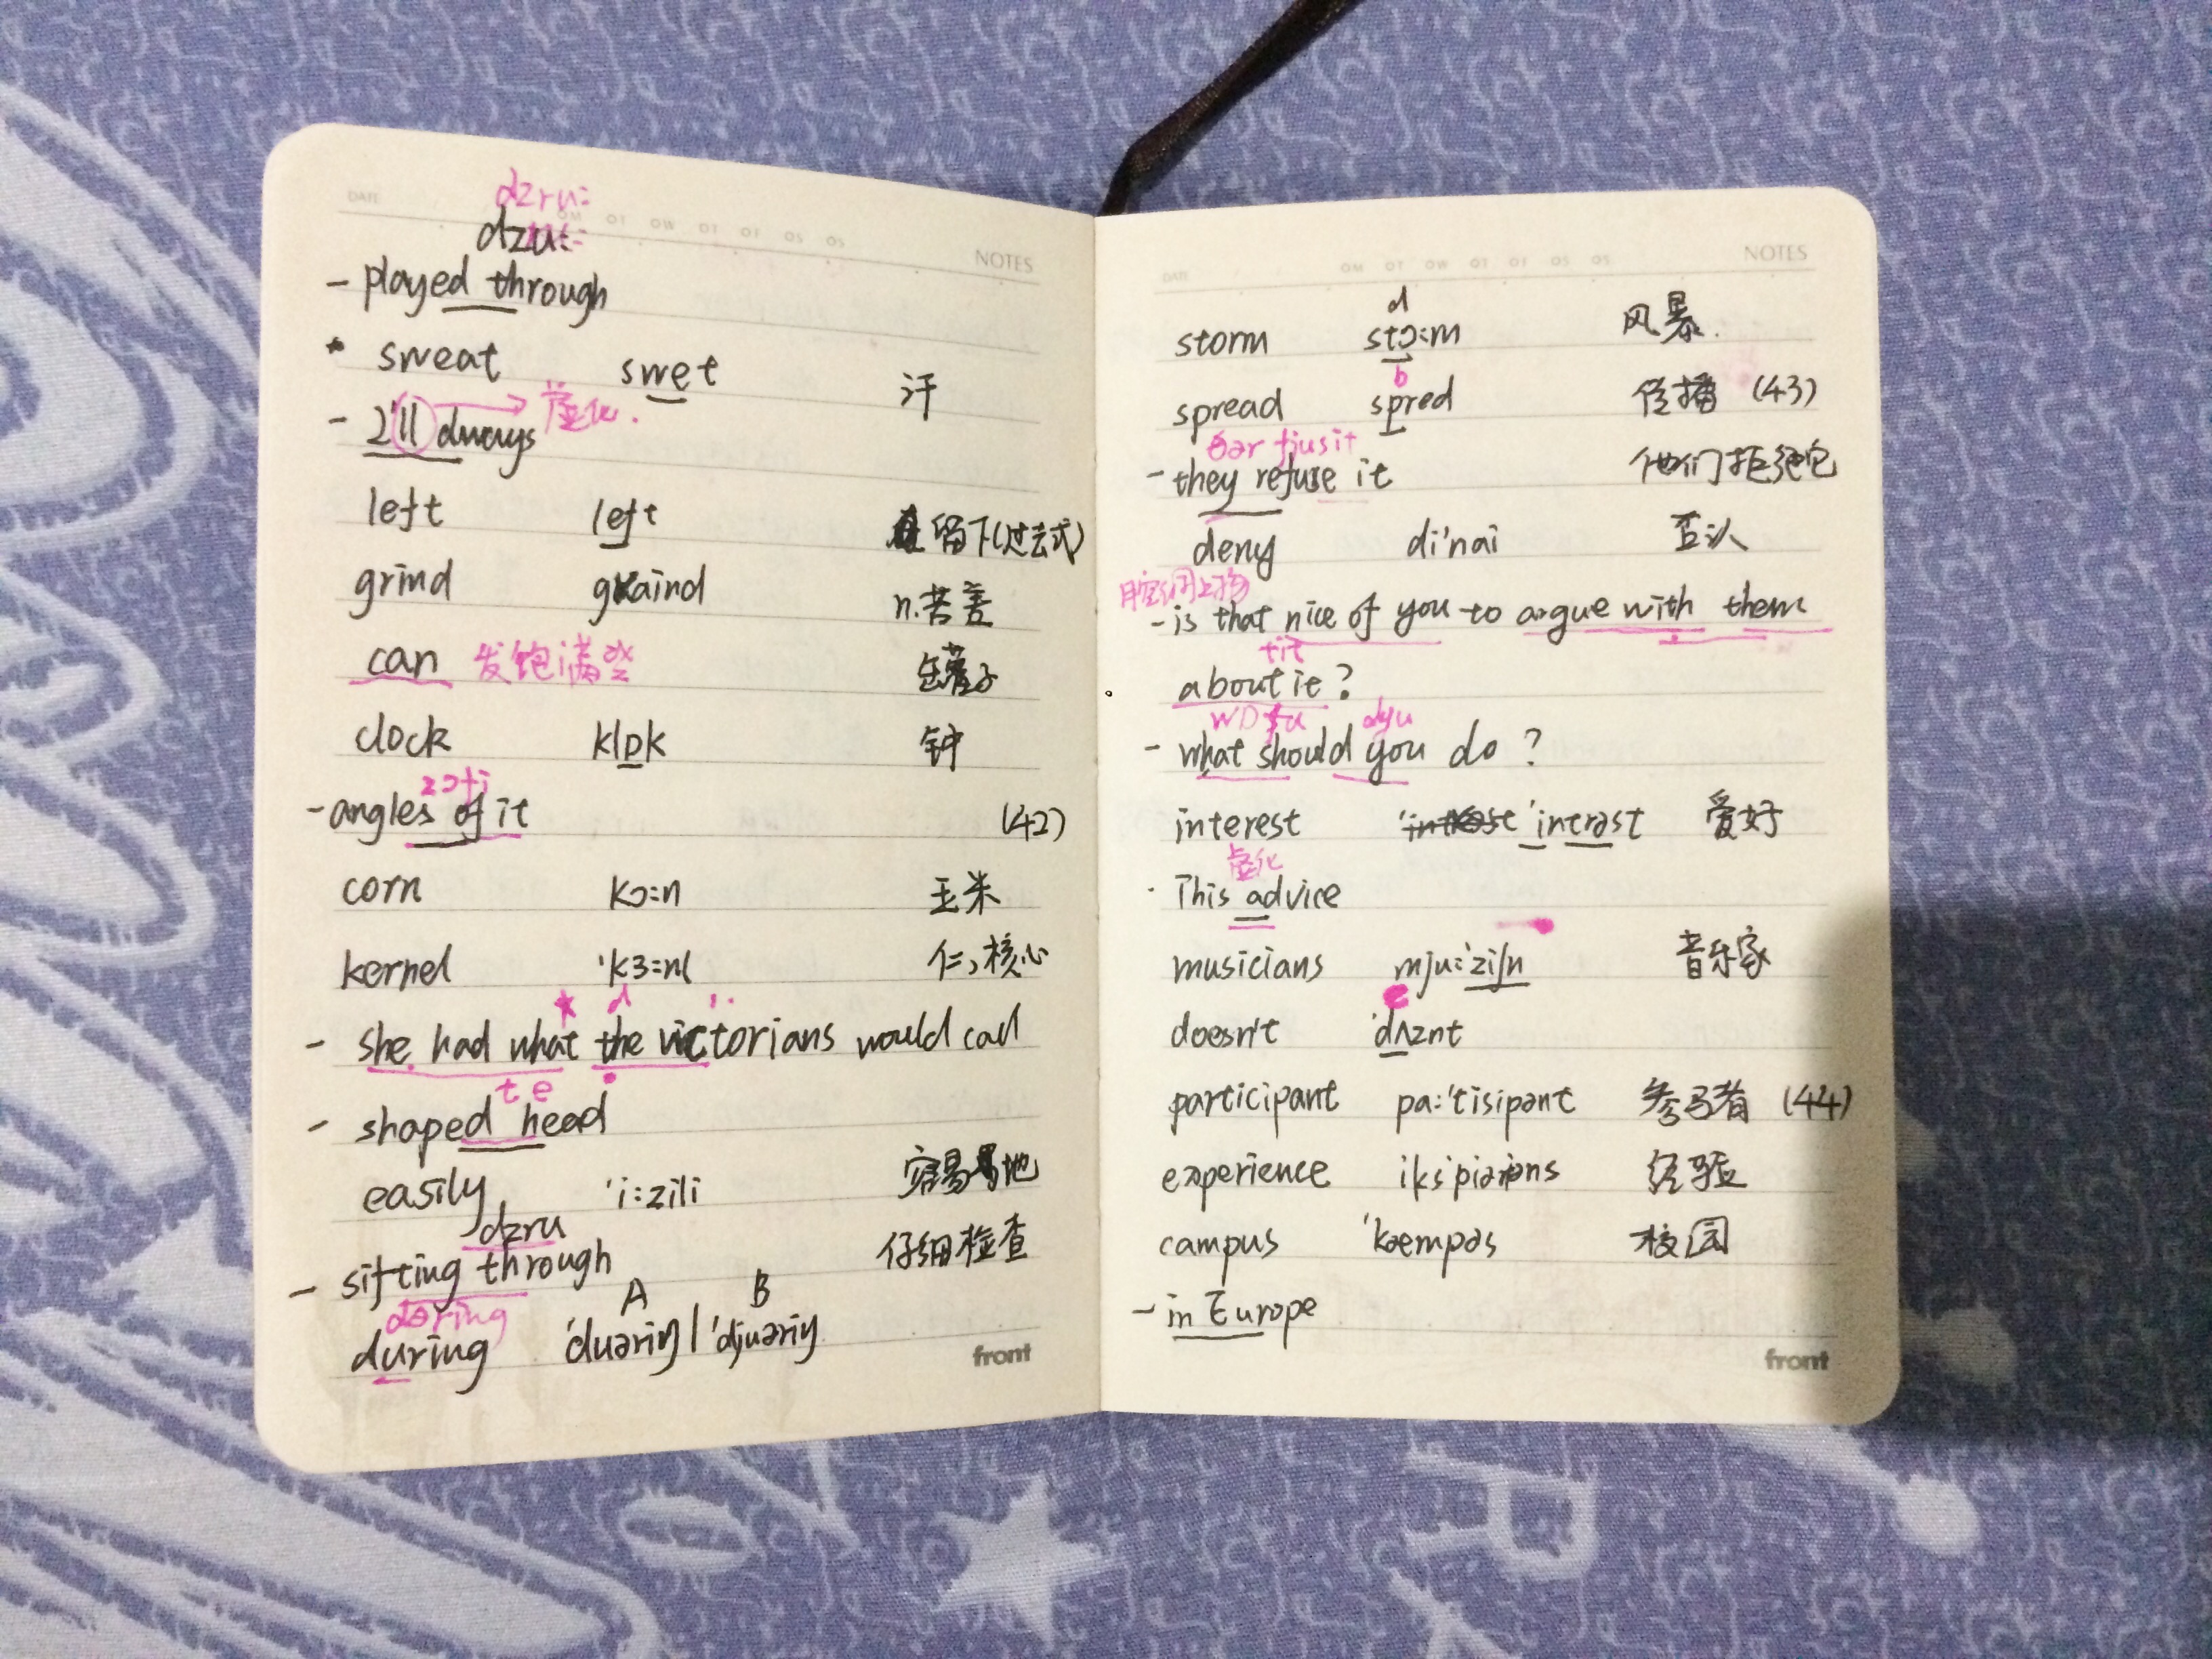 DATE
dzru:
dzu:
NOTES
- played through
* sweat swet 汗
虚化.
- I'll always
left left 留下(过去式)
grind graind n.苦差
can 发饱满些 罐子
clock klɒk 钟
zəfi
- angles of it (42)
corn kɔ:n 玉米
kernel 'kɜ:nl 仁,核心
d
- she had what the victorians would call
t e
- shaped head
easily 'i:zili 容易地
dzru
- sifting through 仔细检查
A B
dəring
during 'duəriŋ | 'djuəriŋ
front
DATE NOTES
d
storm stɔ:m 风暴.
b
spread spred 传播 (43)
ðər fjusit
- they refuse it 他们拒绝它
deny di'nai 否认
- is that nice of you to argue with them
tit
about it?
- what should you do?
interest 'intrəst 爱好
虚化
· This advice
musicians mju:'ziʃn 音乐家
doesn't 'dʌznt
participant pa:'tisipənt 参与者 (44)
experience iks'piəriəns 经验
campus 'kæmpəs 校园
- in Europe
front